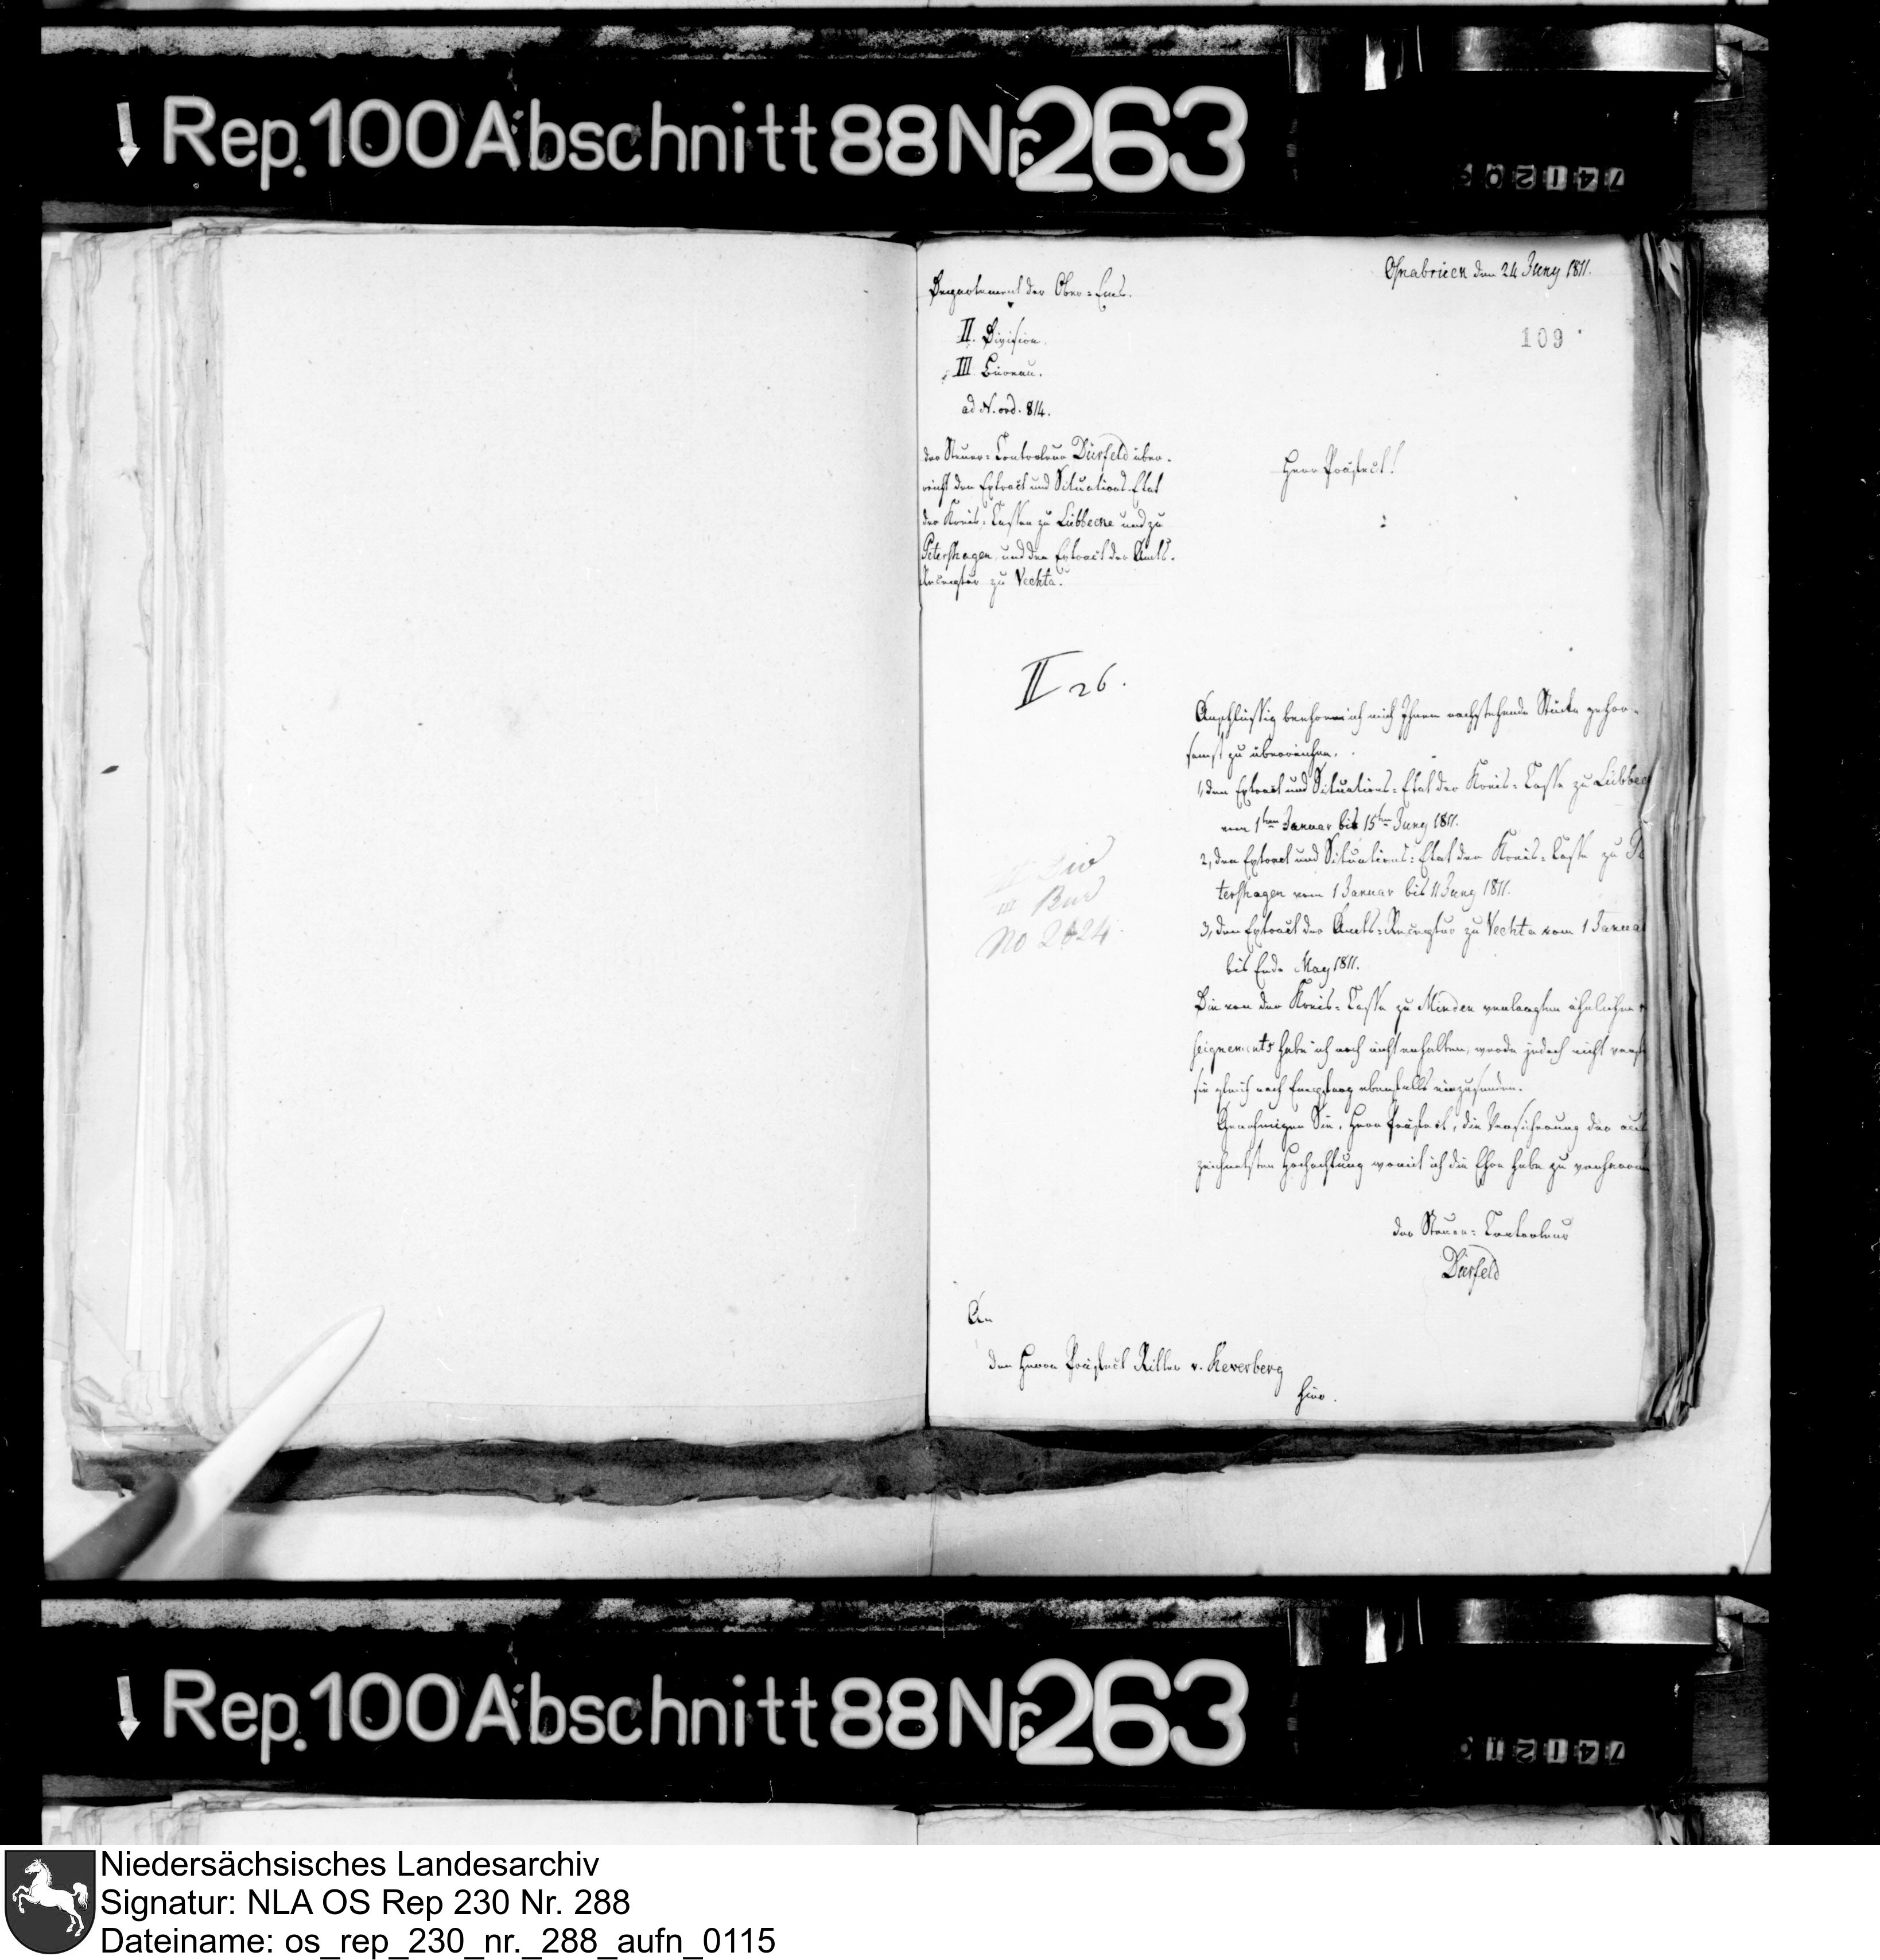 Rep. 100 Abschnitt 88 Nr. 263
Osnabrück den 24 Juny 1811.
109
Departement der Ober-Ems.
II. Division.
III. Büreau.
ad N. ord. 814.
der Steuer-Controleur Dürfeld über-
reicht den Extract und Situations-Etat
der Kreis-Cassen zu Lübbecke und zu
Petershagen, und den Extract der Amts-
Receptur zu Vechta.
Herr Präfect!
II 26.
Anschlüssig beehre ich mich Ihnen nachstehende Stücke gehor-
samst zu überreichen.
1, den Extract und Situations-Etat der Kreis-Casse zu Lübbec
vom 1ten Januar bis 15ten Juny 1811.
2, den Extract und Situations-Etat der Kreis-Casse zu Pe
tershagen vom 1 Januar bis 11 Juny 1811.
3, den Extract der Amts-Receptur zu Vechta vom 1 Januar
bis Ende May 1811.
II Div
III Bur
No 2624
Die von der Kreis-Casse zu Minden verlangten ähnlichen
seignements habe ich noch nicht erhalten, werde jedoch nicht
sie gleich nach Empfang ebenfalls einzusenden.
Genehmigen Sie, Herr Präfect, die Versicherung der aus
zeichnetsten Hochachtung womit ich die Ehre habe zu verharren
der Steuer-Controleur
Dürfeld
An
den Herrn Präfect Ritter v. Keverberg
hier.
Rep. 100 Abschnitt 88 Nr. 263
Niedersächsisches Landesarchiv
Signatur: NLA OS Rep 230 Nr. 288
Dateiname: os_rep_230_nr._288_aufn_0115